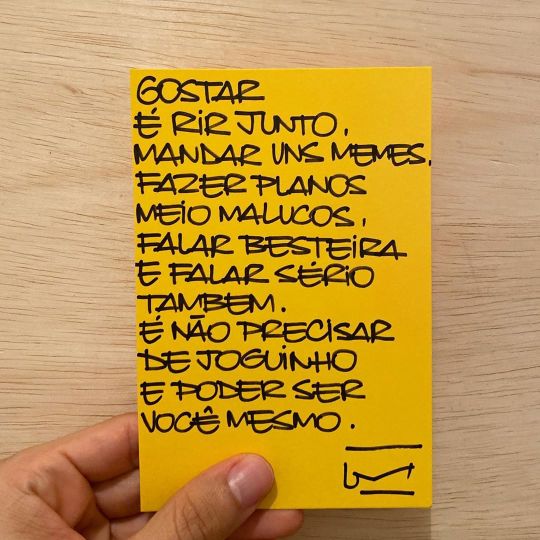 GOSTAR
É RIR JUNTO,
MANDAR UNS MEMES,
FAZER PLANOS
MEIO MALUCOS,
FALAR BESTEIRA
E FALAR SÉRIO
TAMBEM.
É NÃO PRECISAR
DE JOGUINHO
E PODER SER
VOCÊ MESMO.